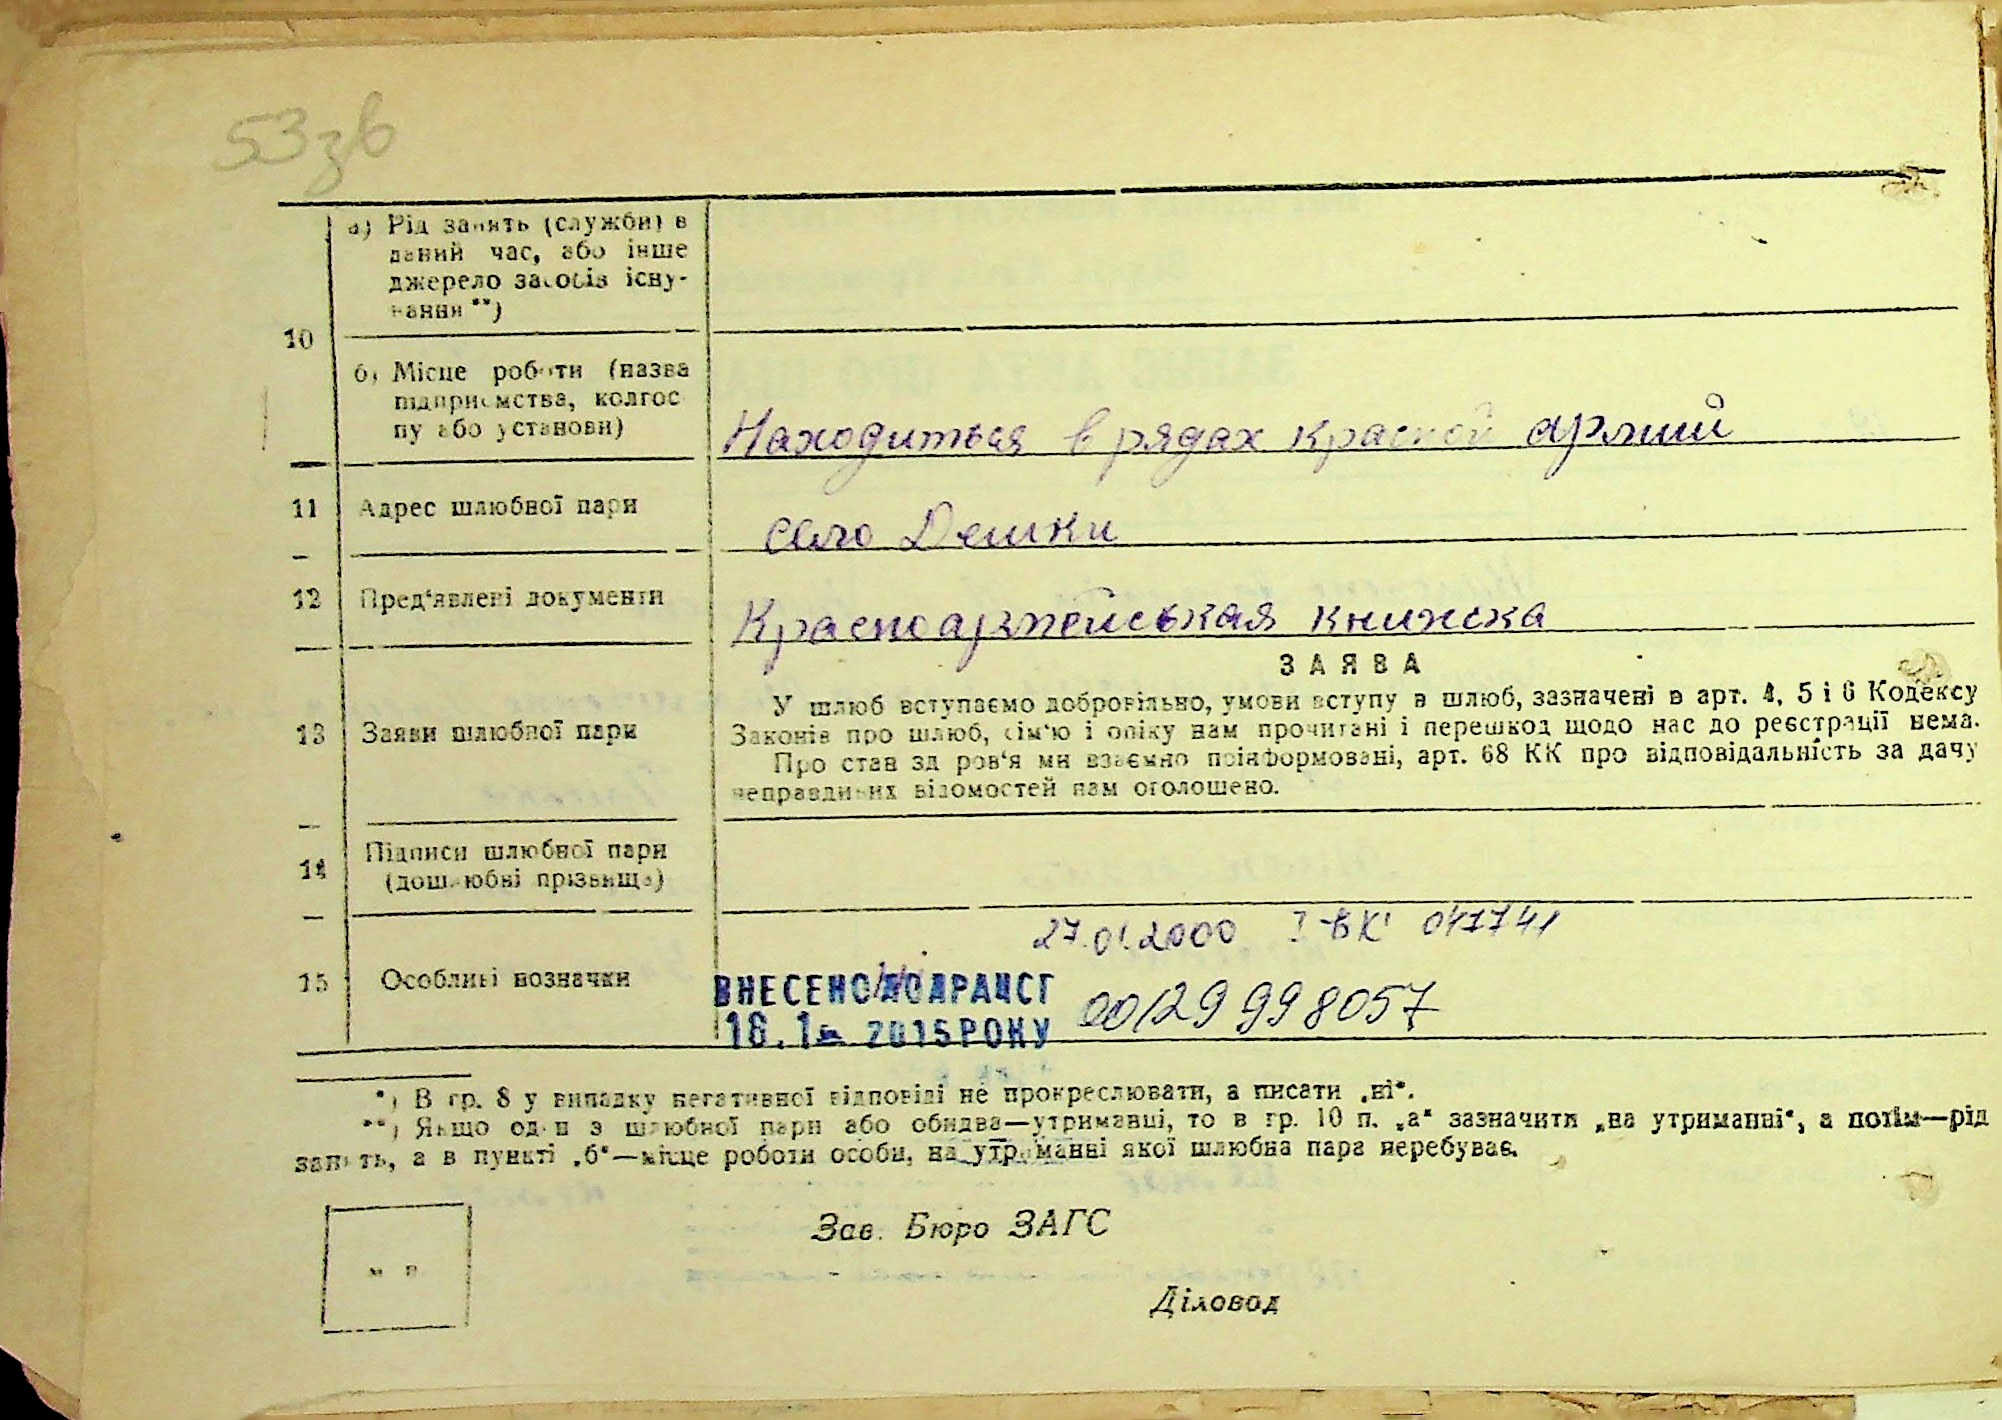 53зв
10
а) Рід занять (служби) в
даний час, або інше
джерело засобів існу-
вання **)
б) Місце роботи (назва
підприємства, колгос
пу або установи)
Находиться в рядах красной армий
11
Адрес шлюбної пари
село Дешки
12
Пред‘явлені документи
Красноармейськая книжска
13
Заяви шлюбної пари
ЗАЯВА
У шлюб вступаємо добровільно, умови вступу в шлюб, зазначені в арт. 4, 5 і 6 Кодексу
Законів про шлюб, сім‘ю і опіку нам прочитані і перешкод щодо нас до реєстрації нема.
Про став зд ров‘я ми взаємно поінформовані, арт. 68 КК про відповідальність за дачу
неправдивих відомостей нам оголошено.
14
Підписи шлюбної пари
(дошлюбні прізвища)
27.01.2000 I-БК 047741
15
Особливі возначки
ВНЕСЕНО ДО ДРАЦСГ
2015 РОКУ
00129998057
*) В гр. 8 у випадку негативної відповіді не прокреслювати, а писати „ні“.
**) Якщо один з шлюбної пари або обидва—утриманці, то в гр. 10 п. „а“ зазначити „на утриманні“, а потім—рід
занять, а в пункті „б“—місце роботи особи, на утриманні якої шлюбна пара перебуває.
м п
Зав. Бюро ЗАГС
Діловод